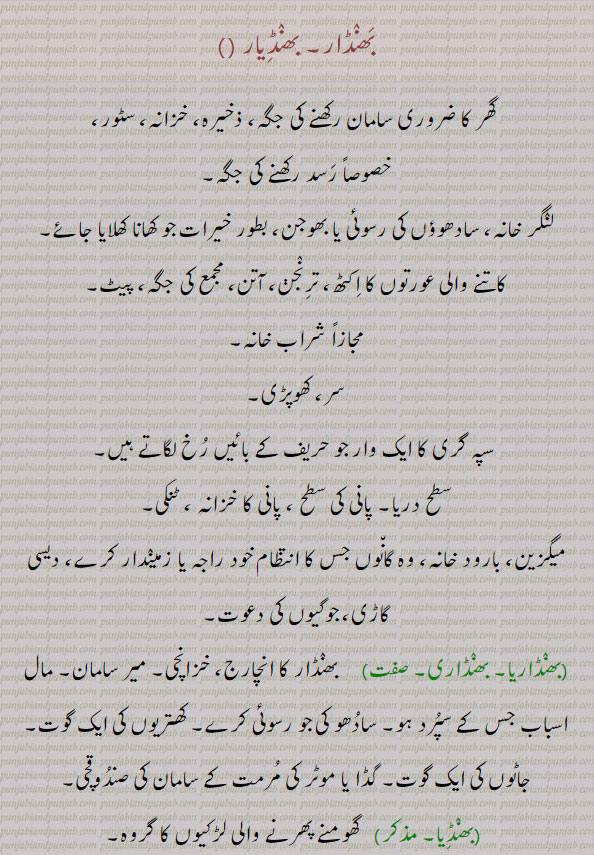 بَھنْڈار۔ بھنْڈِیار ()
گَھر کا ضروری سامان رکھنے کی جگہ، ذخیرہ، خزانہ، سٹور،
خصوصاً رَسد رکھنے کی جگہ۔
لنگر خانہ، سادھوؤں کی رسوئی یا بھوجن، بطور خیرات جو کھانا کھلایا جائے۔
کاتنے والی عورتوں کا اِکٹھ، ترِنْجَن، آتن، مجمع کی جگہ، پیٹ۔
مجازاً شراب خانہ۔
سر، کھوپڑی۔
سپہ گری کا ایک وار جو حریف کے بائیں رُخ لگاتے ہیں۔
سطح دریا۔ پانی کی سطح، پانی کا خزانہ، ٹنکی۔
میگزین، بارود خانہ، وہ گانّوں جس کا انتظام خود راجہ یا زمینْدار کرے، دیسی
گاڑی، جوگیوں کی دعوت۔
(بھنْڈاریا۔ بھنْڈاری۔ صفت) بھنْڈار کا انچارج، خزانچی۔ میر سامان۔ مال
اسباب جس کے سپُرد ہو۔ سادُھو کی جو رسوئی کرے۔ کھتریوں کی ایک گوت۔
جاٹوں کی ایک گوت۔ گڈا یا موٹر کی مُرمت کے سامان کی صندُوقچی۔
(بھنْڈِیا۔ مذکر) گھومنے پھرنے والی لڑکیوں کا گروہ۔
punjabiandpunjab.com